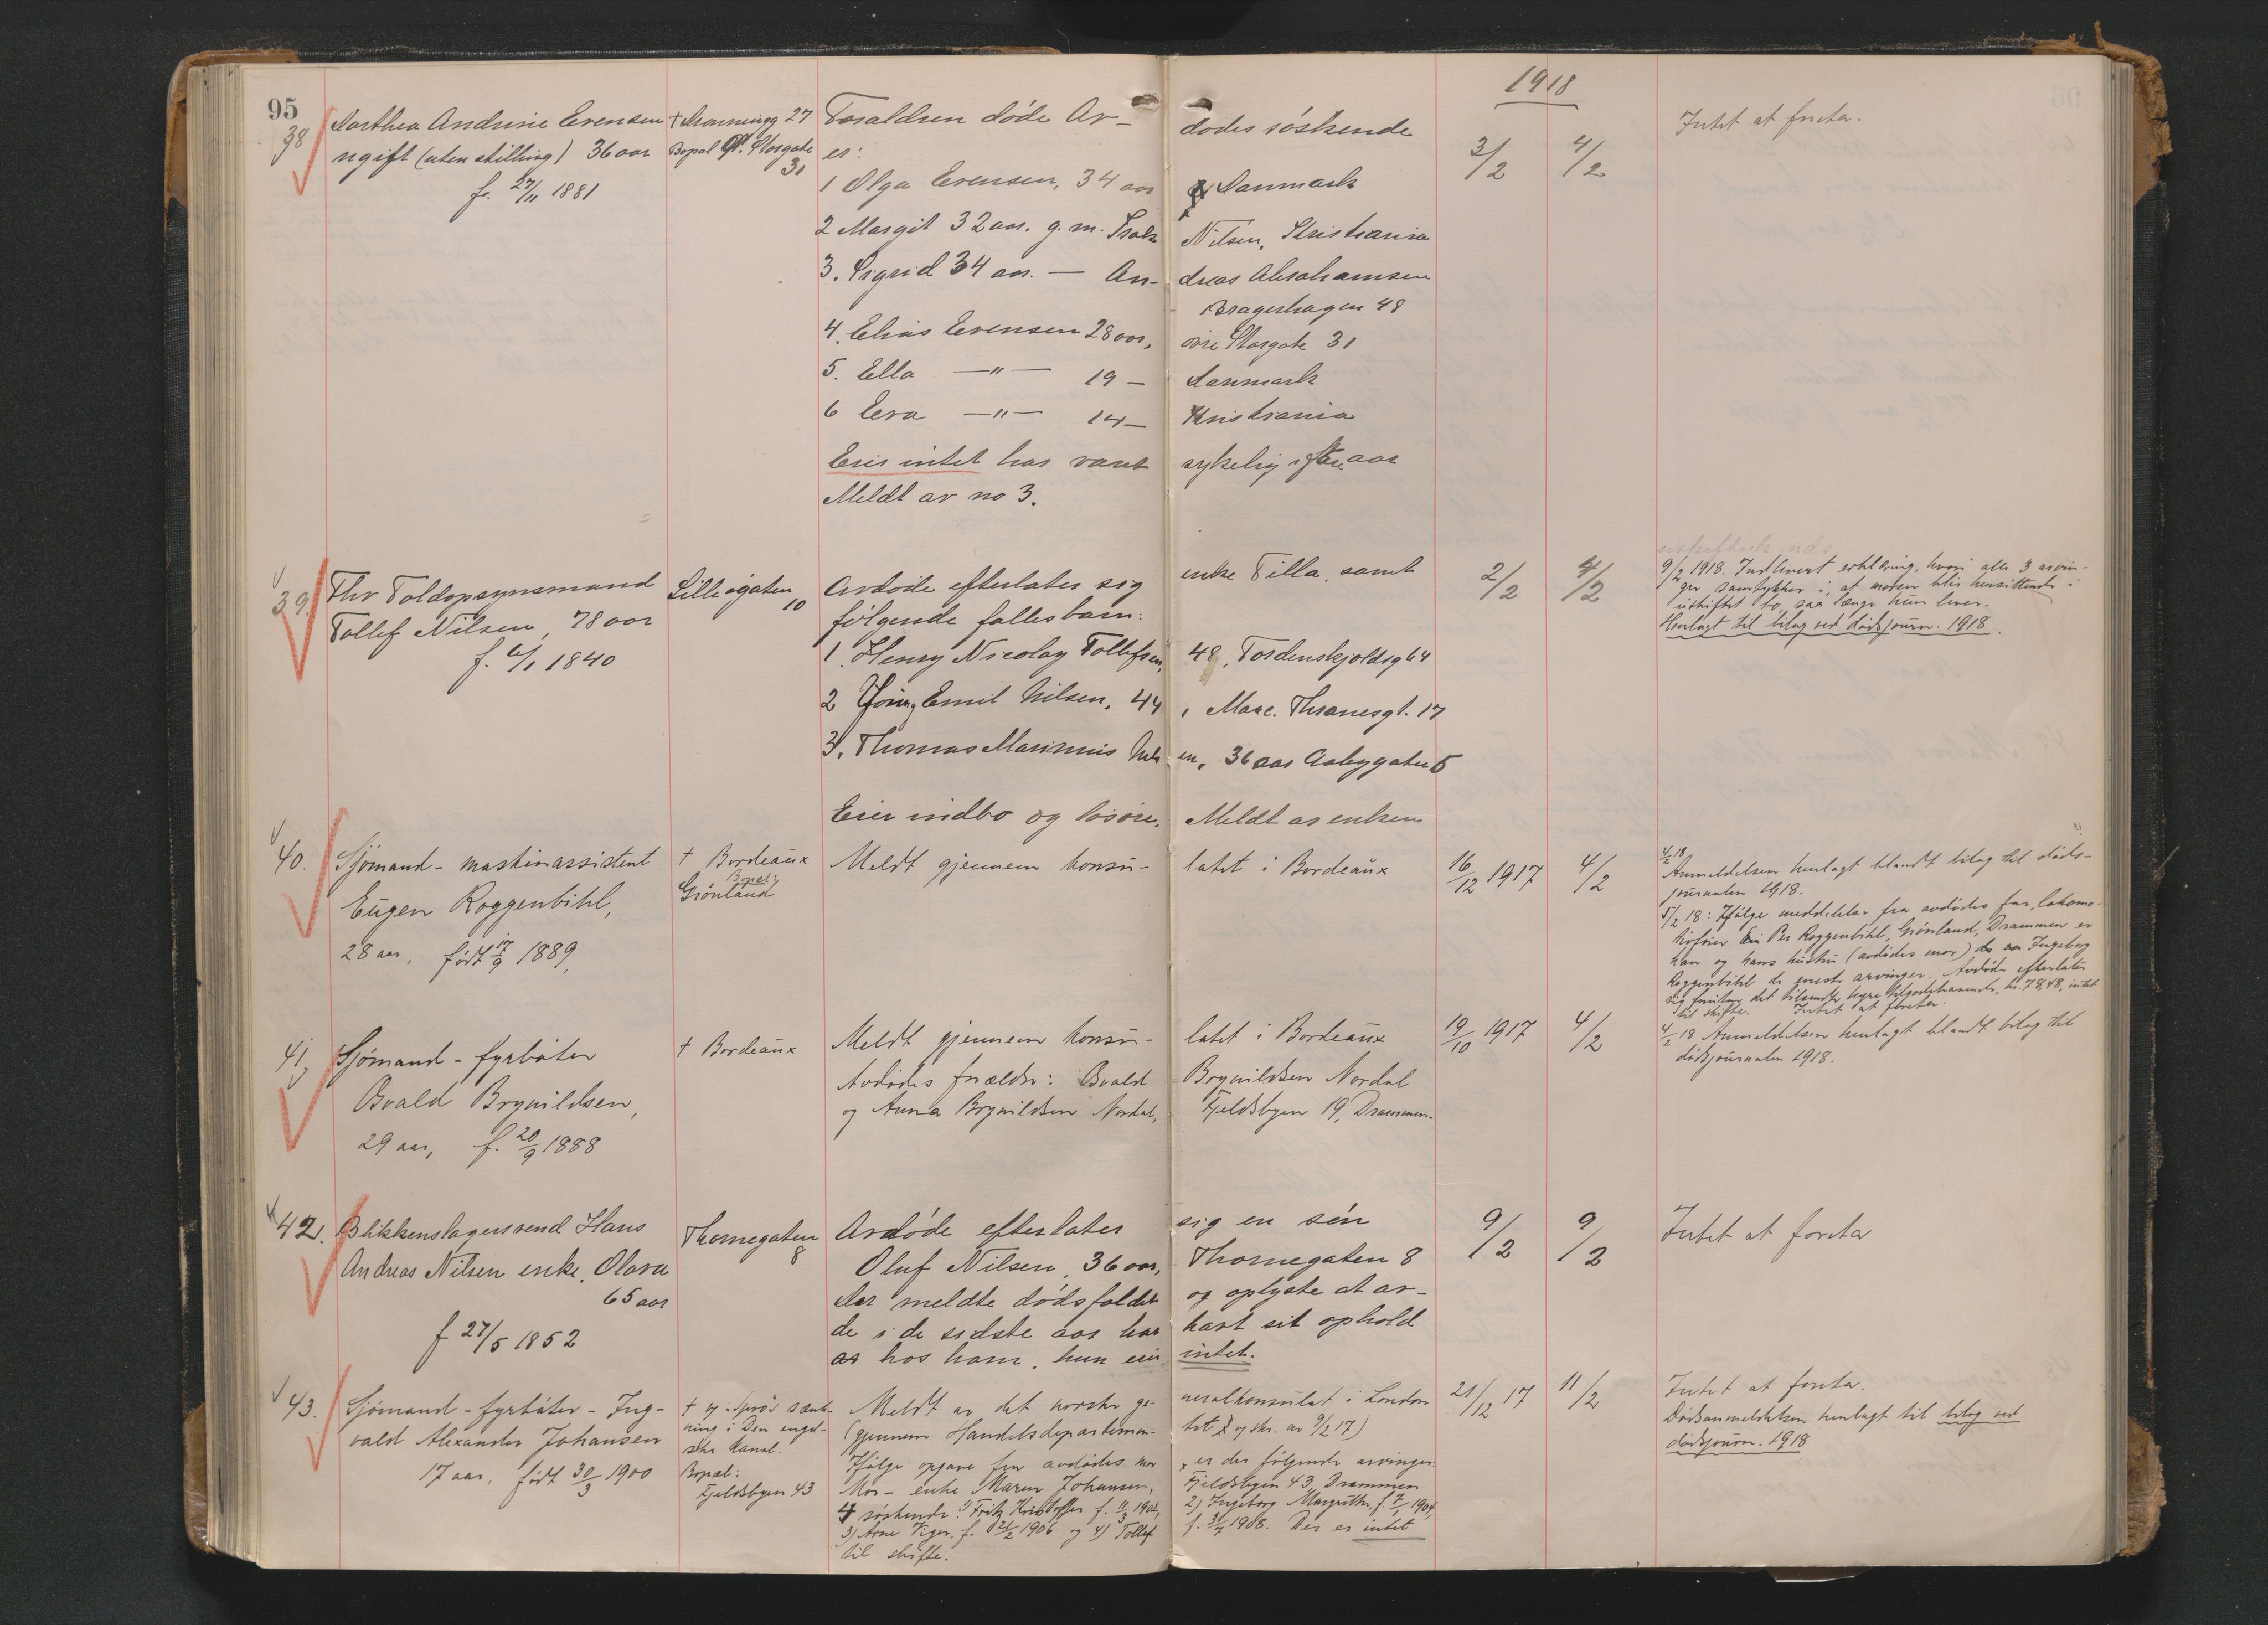 95
1918
38 Marthea Andrine Evensen
ugift (uten stilling) 36 aar
f. 27/11 1881
† Kronningg 27
Bopæl Ø. Storgate
31
Forældren døde Av- dødes søskende
er:
1 Olga Evensen, 34 aar Danmark
2 Margit 32 aar. g. m. Isak Nilsen, Kristiania
3. Sigrid 34 aar. — An- dreas Abrahamsen
Bragerhagen 48
4. Elias Evensen 28 aar, øvre Storgate 31
5. Ella —"— 19 — Danmark
6 Eva —"— 14 — Kristiania
Eier intet har vært sykelig i flere aar
Meldt av no 3.
3/2 4/2
Intet at foreta.
39. Fhv Toldopsynsmand
Tollef Nilsen, 78 aar
f. 6/1 1840
Lilleøgaten
10
Avdøde efterlater sig enke Tilla, samt
følgende fellesbarn:
1. Henry Nicolay Tollefsen, 48, Tordenskjoldsg 64
2 Emil Nilsen, 44, Marc. Thranesgt. 17
3. Thomas Marinius Nilsen, 36 aar Aabygaten 5
Eier indbo og løsøre. Meldt av enken
2/2 4/2
9/2 1918. Indlevert erklæring, hvori alle 3 arvin-
ger samtykker i, at moren blir hensittende i
uskiftet bo, saa længe hun lever.
Henlagt til bilag ved dødsjourn. 1918.
40. Sjømand - maskinassistent
Eugen Roggenbihl,
28 aar, født 17/9 1889,
† Bordeaux
Bopæl:
Grønland
Meldt gjennem konsu- latet i Bordeaux
16/12 1917 4/2
4/2 18
Anmeldelsen henlagt blandt bilag til døds-
journalen 1918.
5/2 18: Ifølge meddelelse fra avdødes far, lokomo-
tivfører Per Roggenbihl, Grønland, Drammen er
han og hans hustru (avdødes mor) Ingeborg
Roggenbihl de eneste arvinger. Avdøde efterlater
sig foruten det tilsendte hyre tilgodehavende, kr. 78,48, intet
til skifte. Intet at foreta.
41, Sjømand - fyrbøter
Osvald Brynildsen,
29 aar, f. 20/9 1888
† Bordeaux
Meldt gjennem konsu- latet i Bordeaux
Avdødes forældre: Osvald Brynildsen Nordal
og Anna Brynildsen Nordal, Fjeldsbyen 19, Drammen.
19/10 1917 4/2
4/2 18 Anmeldelsen henlagt blandt bilag til
dødsjournalen 1918.
42. Blikkenslagersvend Hans
Andreas Nilsen enke, Olava
65 aar
f 27/5 1852
Thornegaten
8
Avdøde efterlater sig en søn
Oluf Nilsen, 36 aar, Thornegaten 8
der meldte dødsfaldet og oplyste at av-
de i de sidste aar har havt sit ophold
as hos ham. hun eier intet.
9/2 9/2
Intet at foreta
43. Sjømand - fyrbøter - Ing-
vald Alexander Johansen
17 aar, født 30/3 1900
† v/ "Sprø"s sænk-
ning i Den engel-
ske Kanal.
Bopæl:
Fjeldsbyen 43
Meldt av det norske ge- neralkonsulat i London
(gjennem Handelsdepartemen- tet skr. av 9/2 17)
Ifølge opgave fra avdødes mor er der følgende arvinger:
Mor - enke Maren Johansen, Fjeldsbyen 43, Drammen
4 søskende: 1) Fritz Kristoffer f. 11/3 1902, 2) Ingeborg Margrethe, f. 7/1 1904,
3) Arne Viger, f. 21/2 1906 og 4) Tollef f. 3/7 1908. Der er intet
til skifte.
21/12 17 11/2
Intet at foreta.
Dødsanmeldelsen henlagt til bilag ved
dødsjourn. 1918